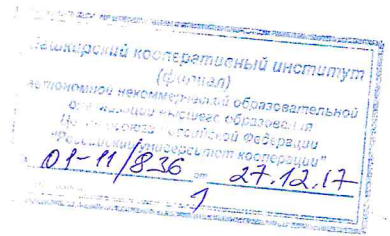 Башкирский кооперативный институт
(филиал)
автономной некоммерческой образовательной
организации высшего образования
Центросоюза Российской Федерации
"Российский университет кооперации"
01-11/836 от 27.12.17
1